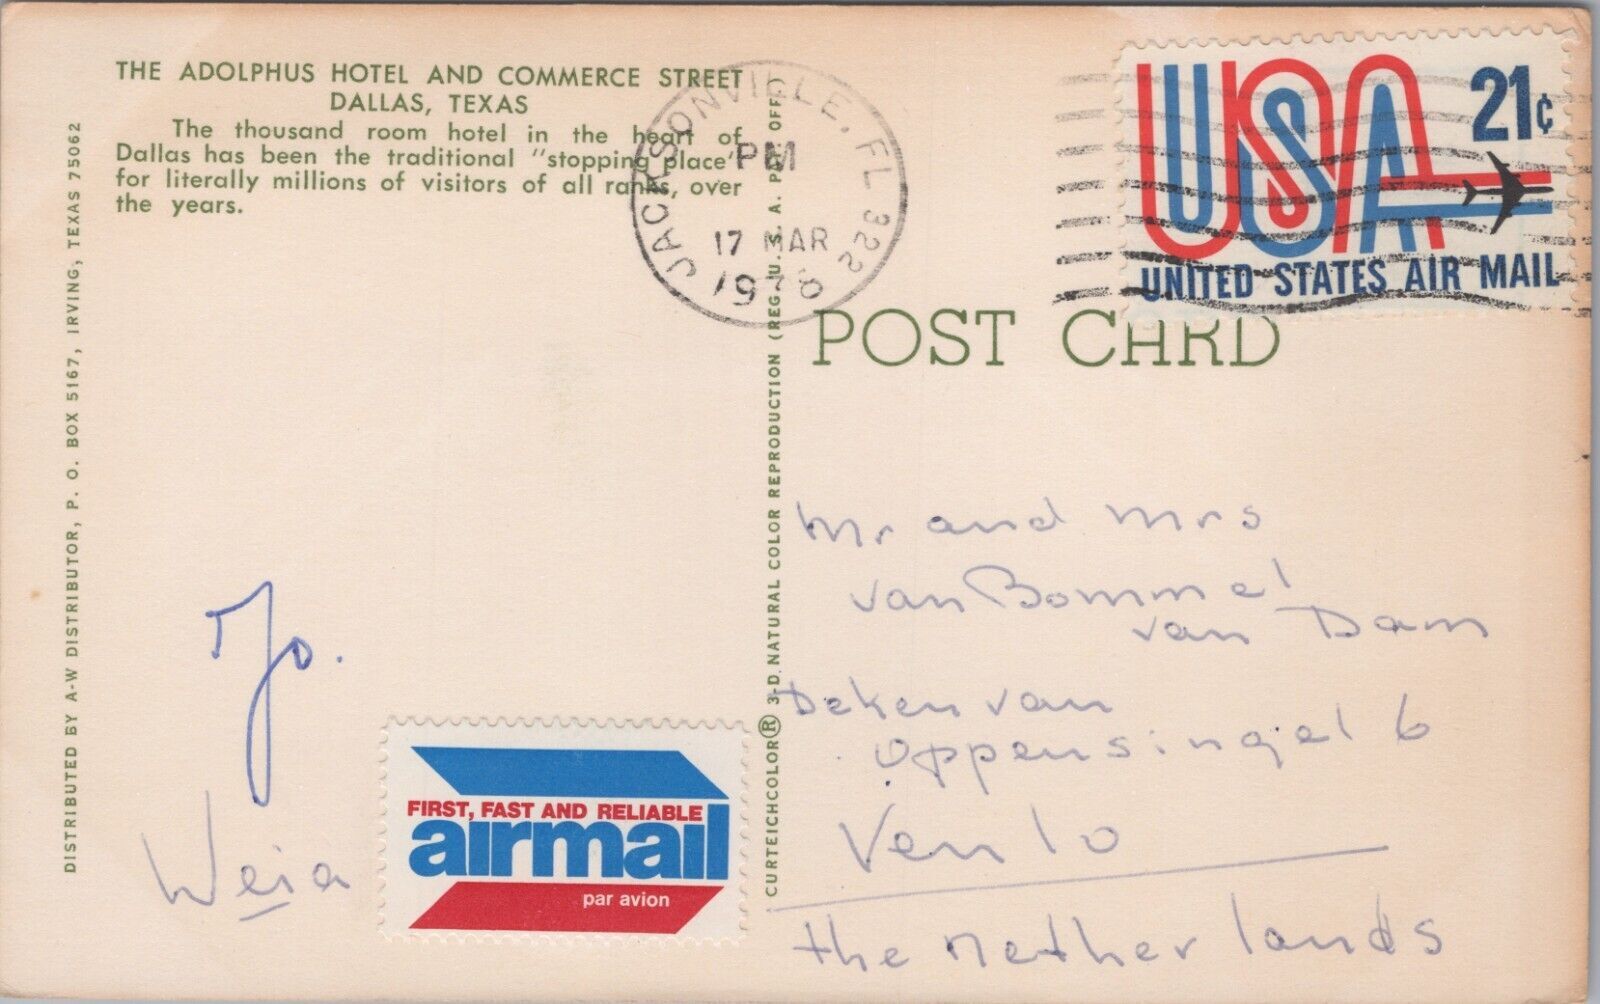 THE ADOLPHUS HOTEL AND COMMERCE STREET
DALLAS, TEXAS
The thousand room hotel in the heart of
Dallas has been the traditional "stopping place"
for literally millions of visitors of all ranks, over
the years.
DISTRIBUTED BY A-W DISTRIBUTOR, P. O. BOX 5167, IRVING, TEXAS 75062
JACKSONVILLE, FL 322
PM
17 MAR
USA
21¢
UNITED STATES AIR MAIL
POST CARD
CURTEICHCOLOR® 3-D NATURAL COLOR REPRODUCTION (REG. U. S. A. PAT. OFF.)
Jo.
Weia
FIRST, FAST AND RELIABLE
airmail
par avion
Mr and Mrs
van Bommel
van Dam
Deken van
Oppensingel 6
Venlo
the Netherlands